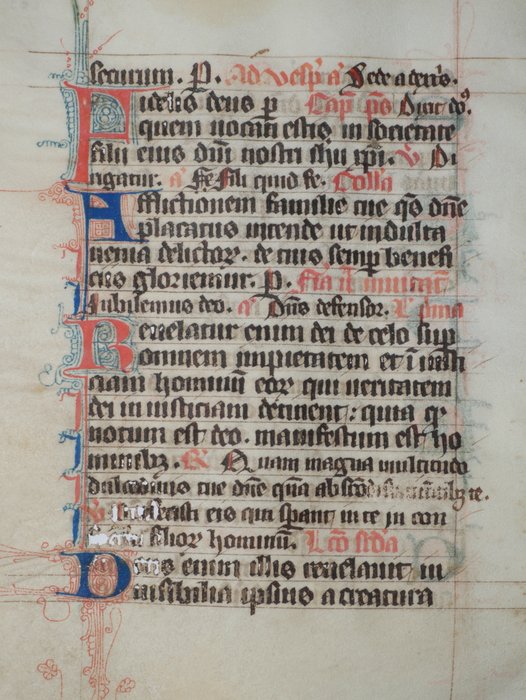 securum. P. Ad vesp̄ a̅ Sede a dext̄s.
Fidelis deus p Cap̄ p̄s Dixit do⁹.
quem uocati estis in societate
filii eius dn̄i nostri ihu xpi. V Di
rigatur. a̅ Fili quid fe. Coll̄a
Afflictionem familie tue qs̄ dn̄e
placatus intende ut indulta
uenia delictoꝝ. de tuis semp̄ benefi
ciis gloriemur. P.
Iubilemus deo. Dn̄s defensor. L p̄ma
Reuelatur enim dei de celo sup̄
omnem impietatem et ī iusti
ciam hominū eoꝝ qui ueritatem
dei in iusticiam detinent: quia qđ
notum est deo. manifestum est ho
minibꝫ. R Quam magna multitudo
dulcedinis tue dn̄e qua̅ abscōdisti timentibꝫ te.
eis qui sꝑant in te in con
filioꝝ hominū. Lc̄o sc̄da
Deus enim illis reuelauit in
uisibilia ipsius a creatura